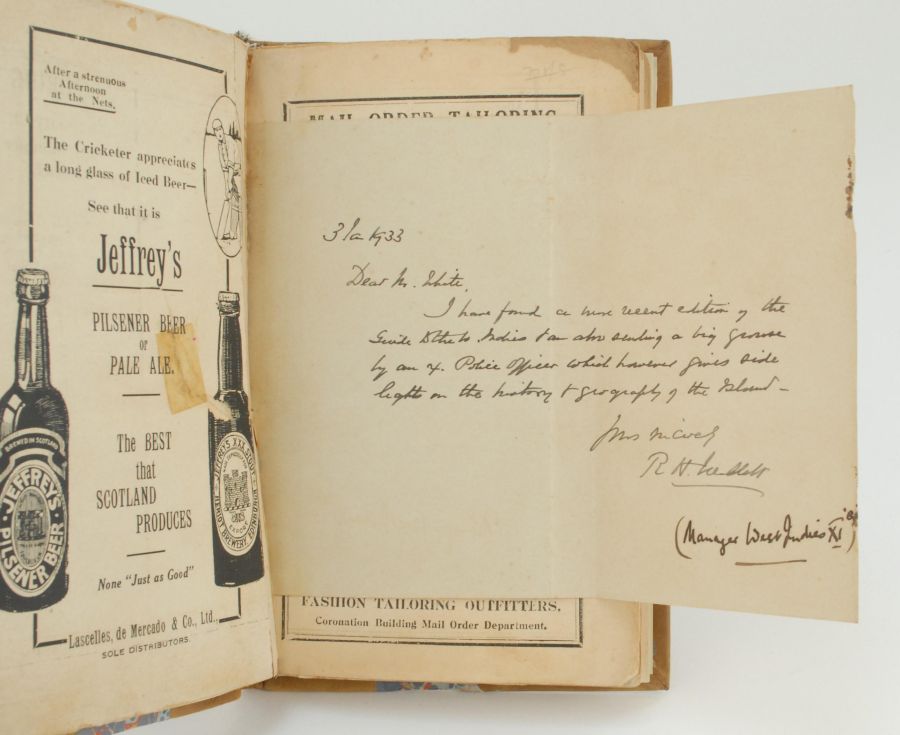 After a strenuous
Afternoon
at the Nets.
The Cricketer appreciates
a long glass of Iced Beer—
See that it is
Jeffrey's
PILSENER BEER
or
PALE ALE.
The BEST
that
SCOTLAND
PRODUCES
None "Just as Good"
Lascelles, de Mercado & Co., Ltd.,
SOLE DISTRIBUTORS.
BREWED IN SCOTLAND
JEFFREY'S
PILSENER BEER
JEFFREY'S XXX STOUT
HERIOT BREWERY EDINBURGH
MAIL ORDER TAILORING
3 Jan 1933
Dear Mr. White,
I have found a more recent edition of the
Guide to the W. Indies & am also sending a big grouse
by an ex. Police Officer which however gives side
lights on the history & geography of the Island –
Yrs sincerely
R H
(Manager West Indies XI)
FASHION TAILORING OUTFITTERS,
Coronation Building Mail Order Department.